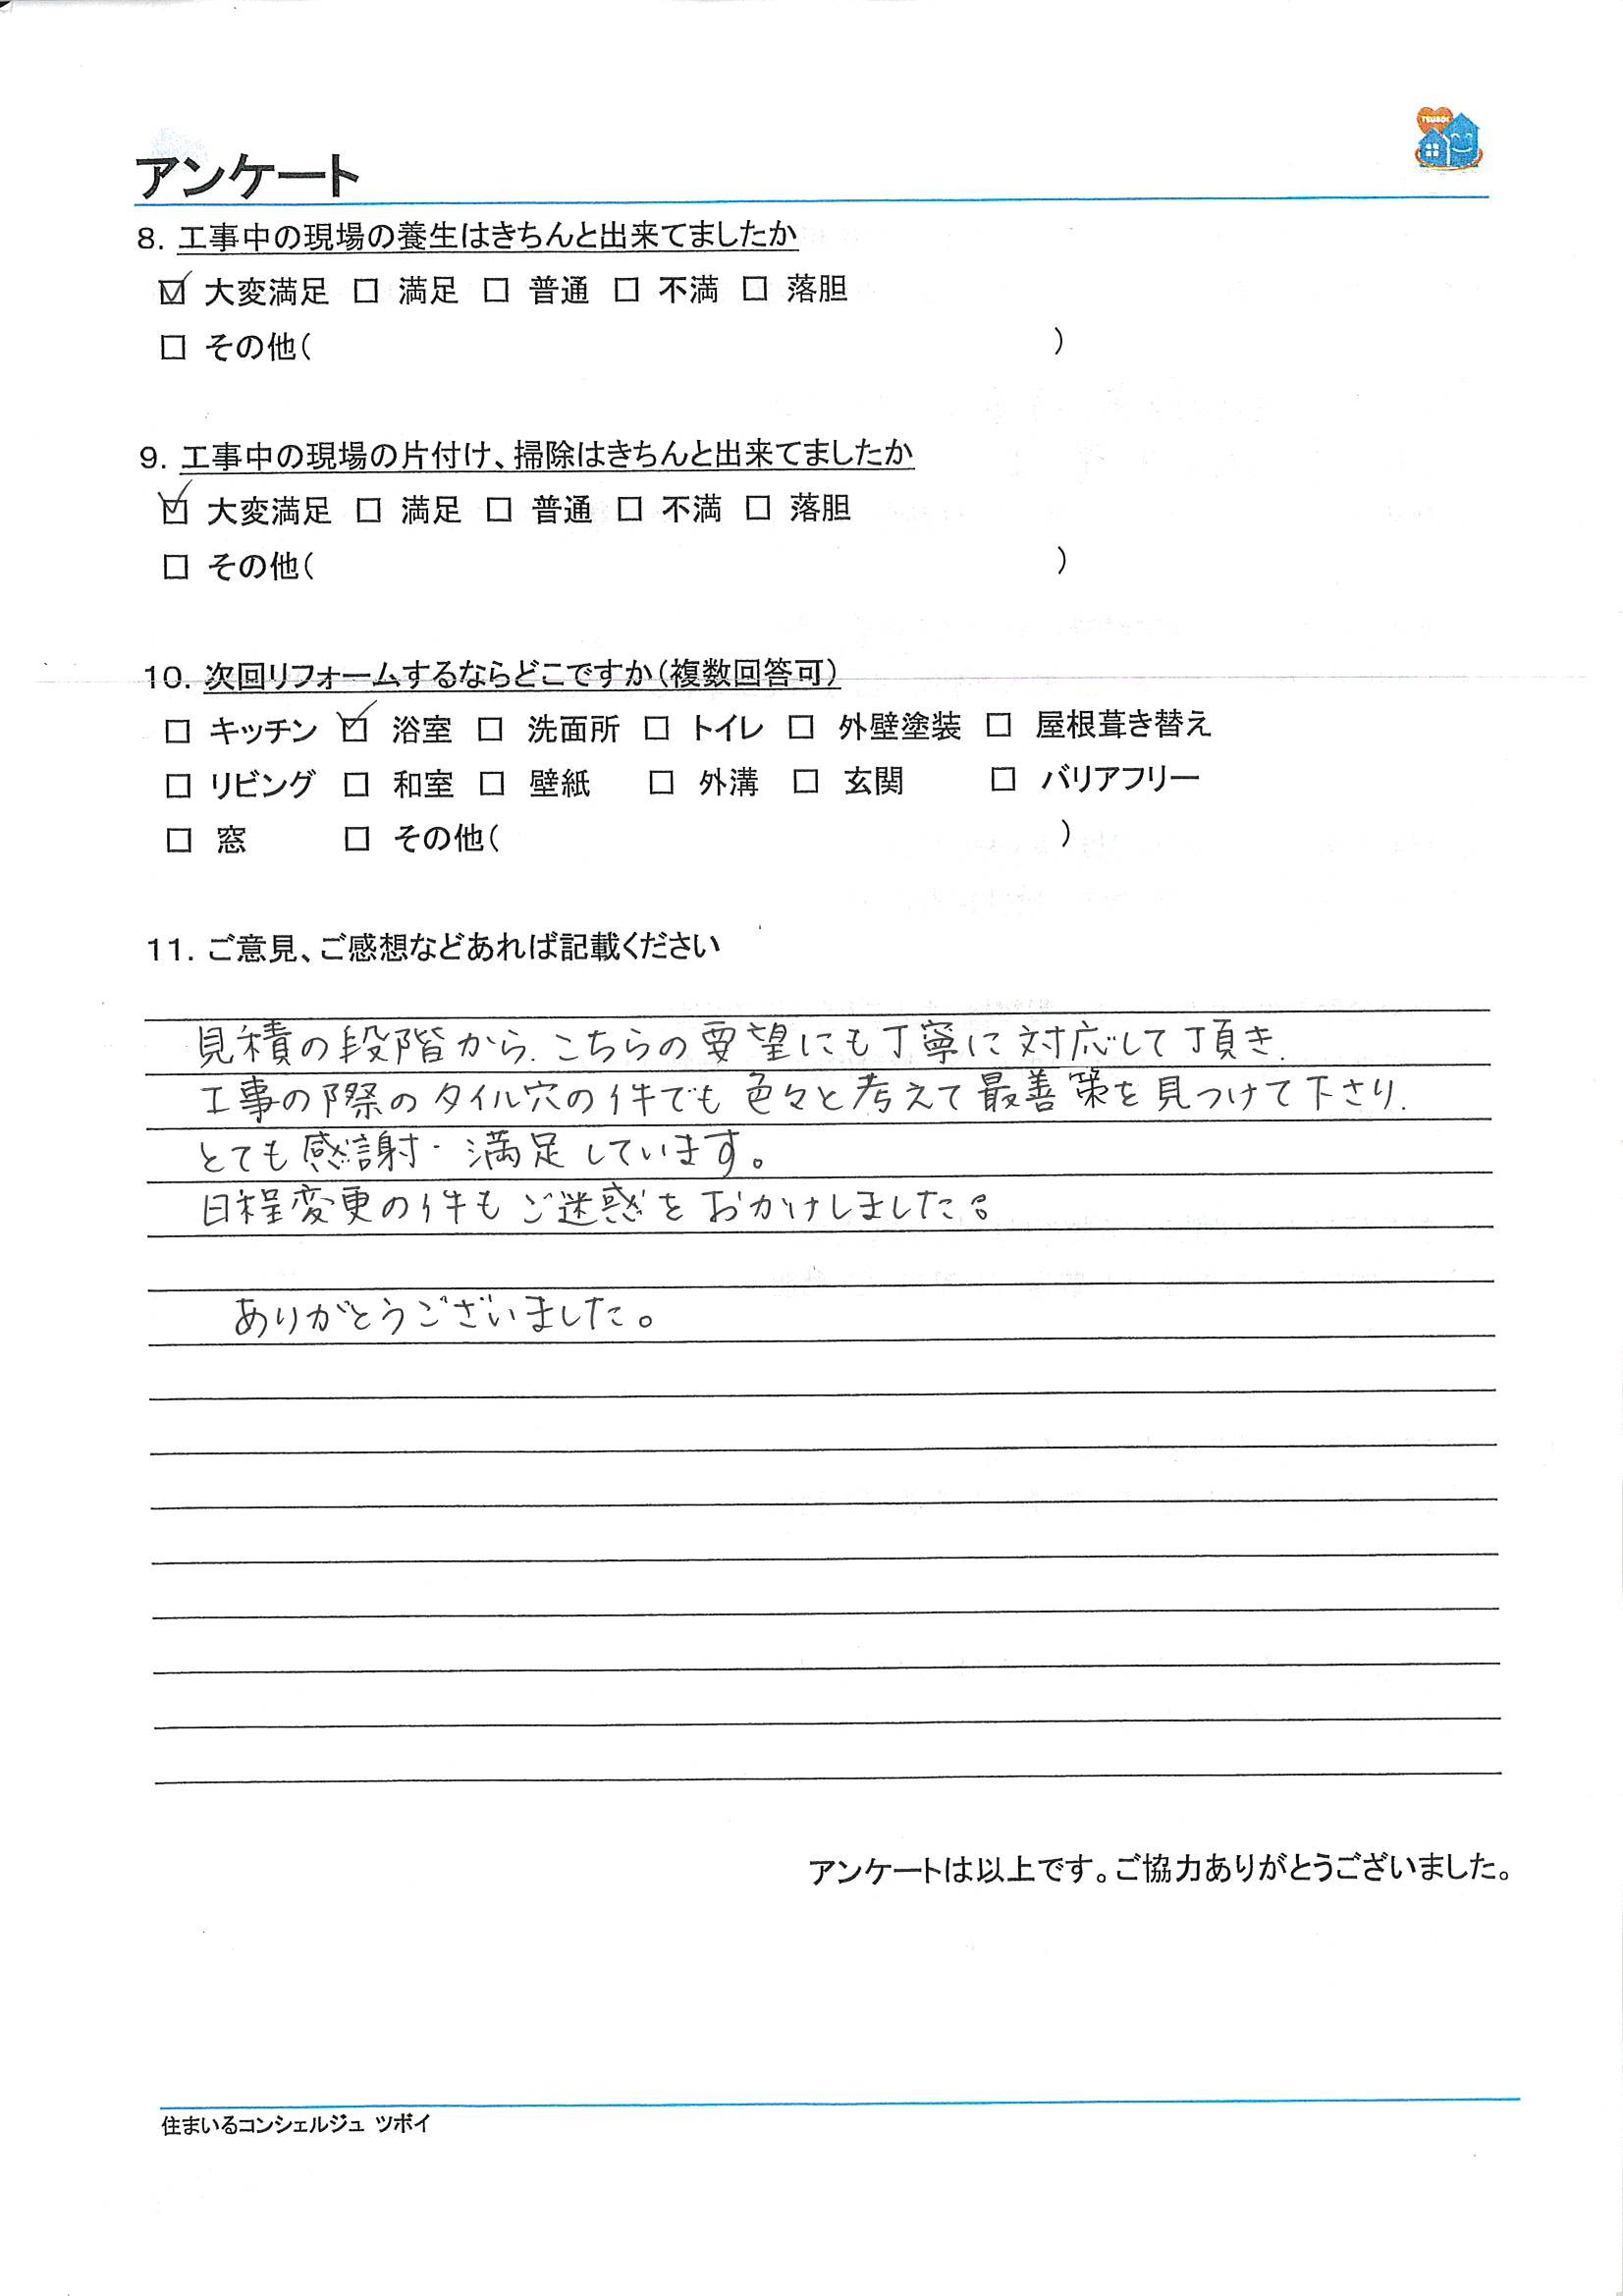 TSUBOI
アンケート
8. 工事中の現場の養生はきちんと出来てましたか
☑ 大変満足 □ 満足 □ 普通 □ 不満 □ 落胆
□ その他( )
9. 工事中の現場の片付け、掃除はきちんと出来てましたか
☑ 大変満足 □ 満足 □ 普通 □ 不満 □ 落胆
□ その他( )
10. 次回リフォームするならどこですか(複数回答可)
□ キッチン ☑ 浴室 □ 洗面所 □ トイレ □ 外壁塗装 □ 屋根葺き替え
□ リビング □ 和室 □ 壁紙 □ 外溝 □ 玄関 □ バリアフリー
□ 窓 □ その他( )
11. ご意見、ご感想などあれば記載ください
見積の段階から、こちらの要望にも丁寧に対応して頂き、
工事の際のタイル穴の件でも色々と考えて最善策を見つけて下さり、
とても感謝・満足しています。
日程変更の件もご迷惑をおかけしました。
ありがとうございました。
アンケートは以上です。ご協力ありがとうございました。
住まいるコンシェルジュ ツボイ